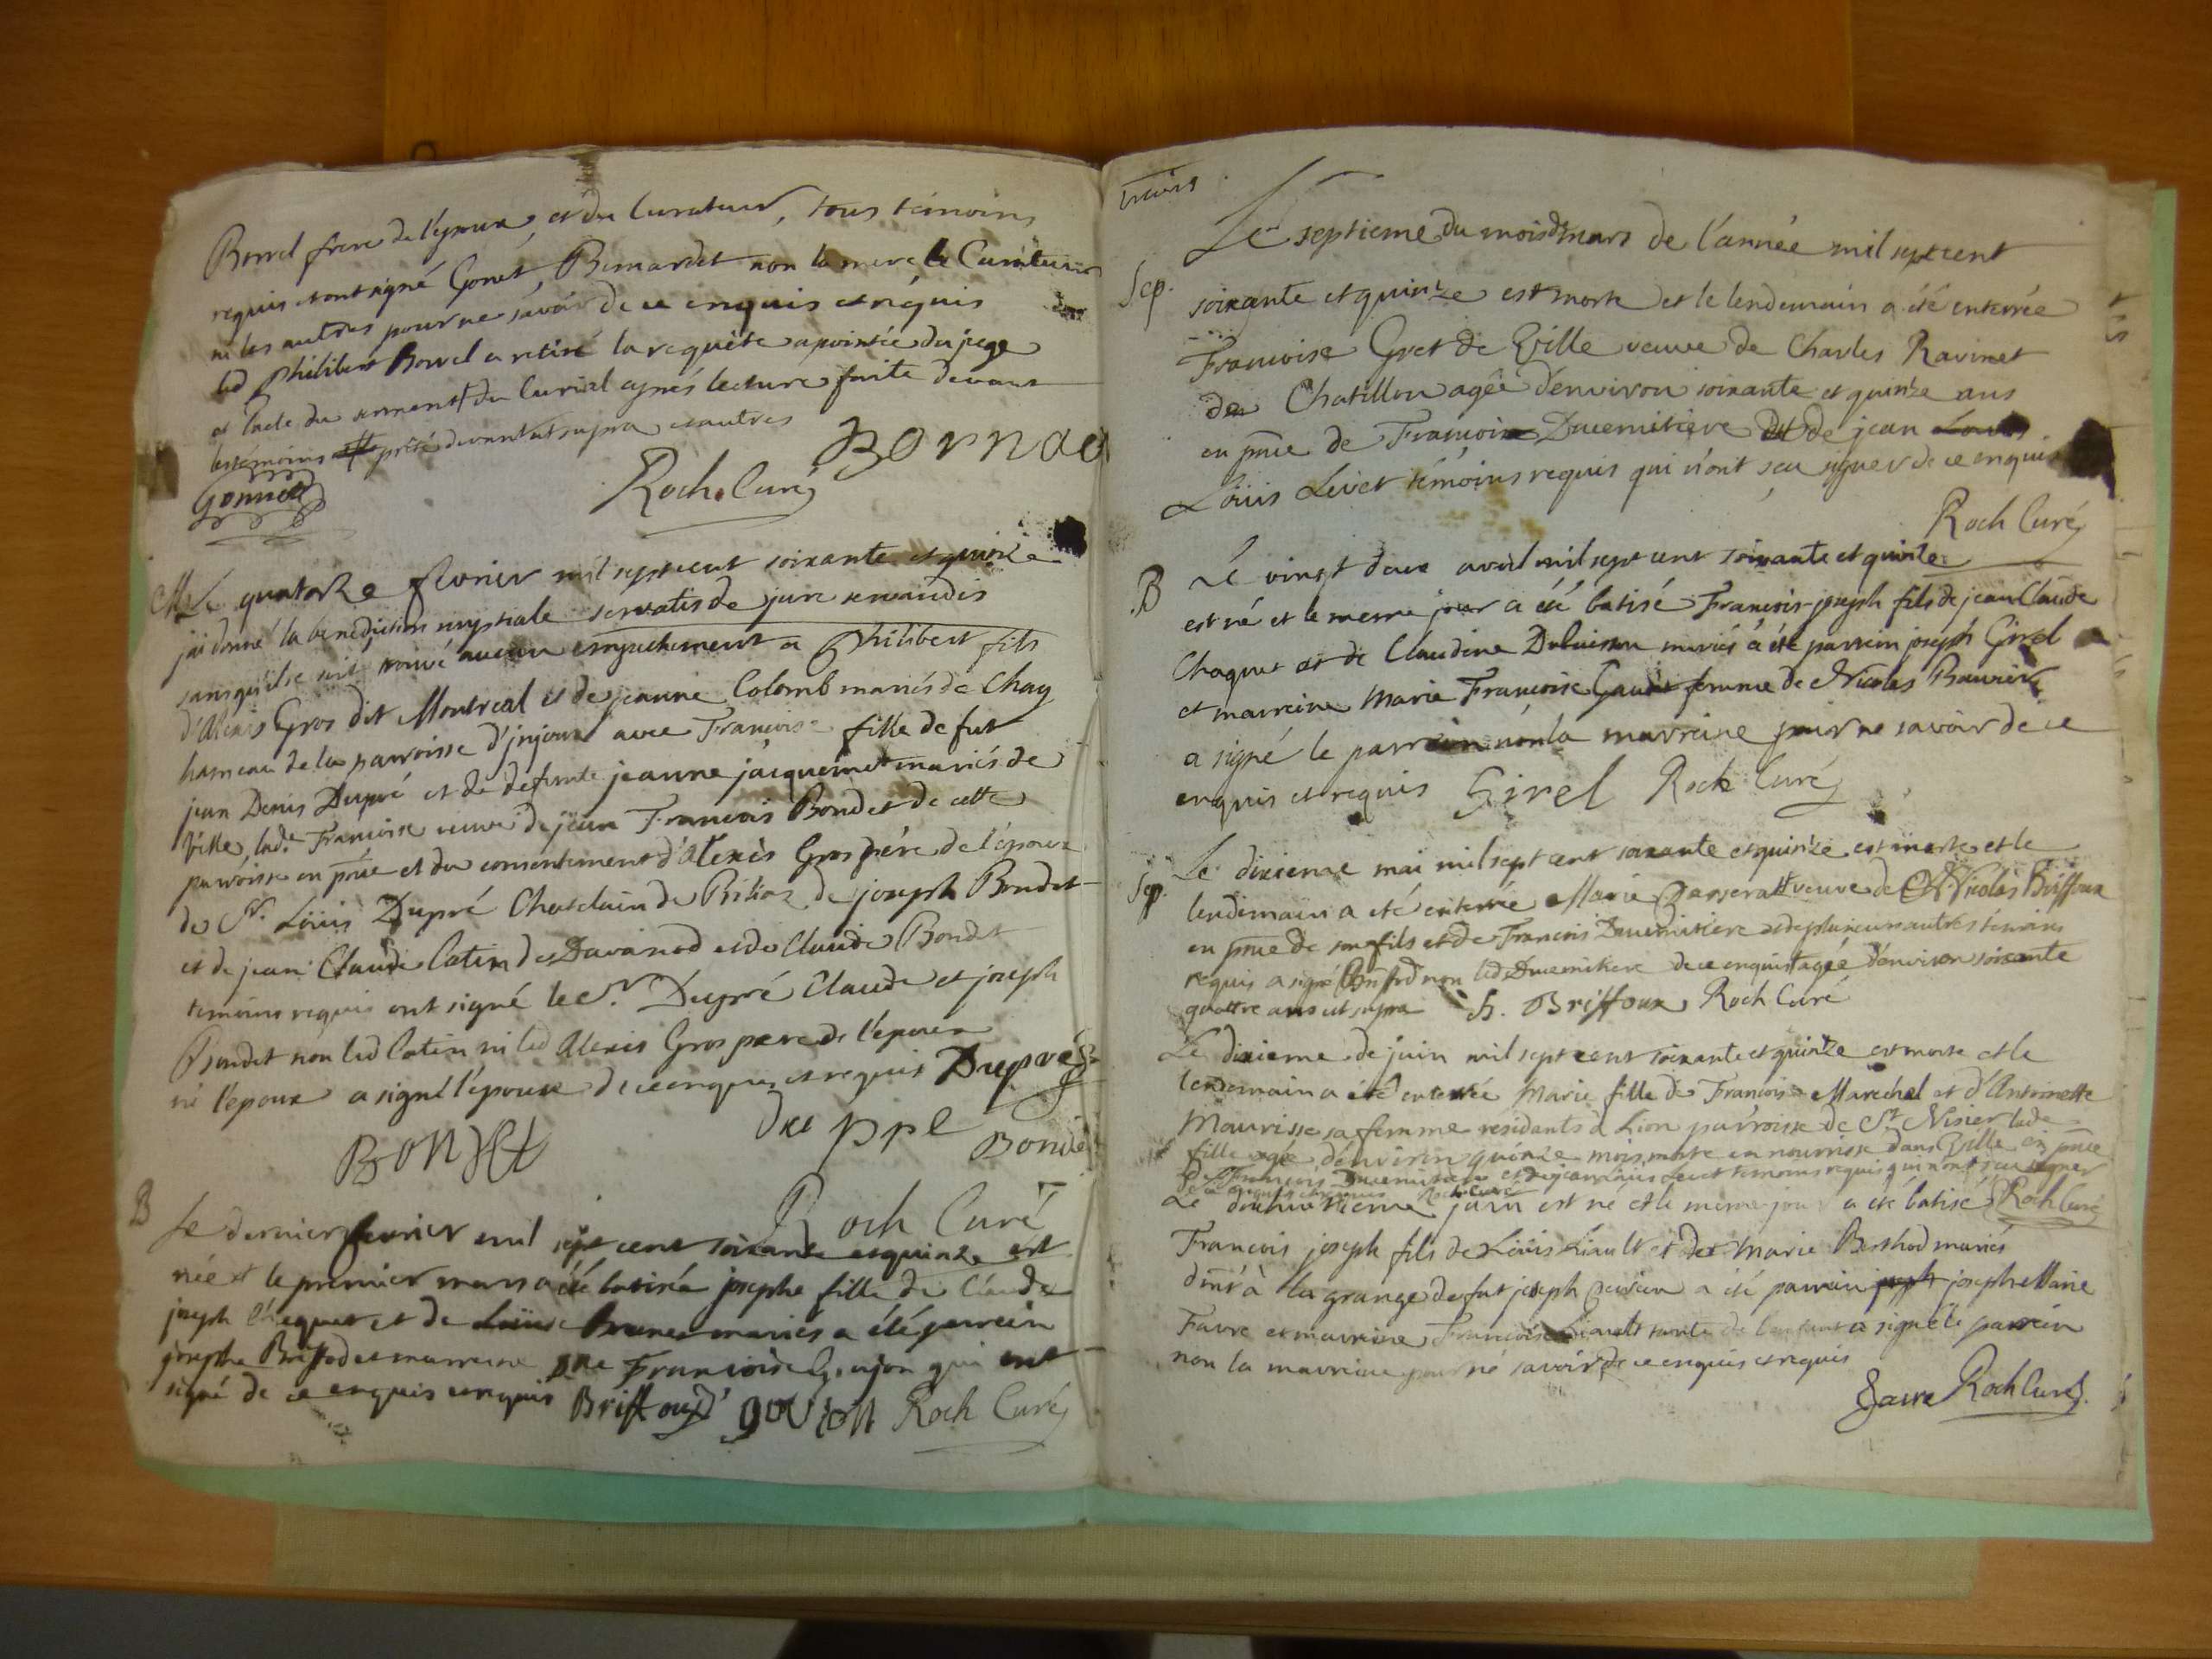 Borrel frere de l'epoux, et du Curateur, tous temoins
requis et ont signé Gonet, Bernardet non la mere le Curateur
ni les autres pour ne savoir de ce enquis et requis
led Philibert Borrel a retiré la requête apointée du juge
et l'acte du serment du Curial aprés lecture faite devant
les témoins prêté devant ut supra et autres
gonnet
Roch Curé
Bornad
M Le quatorze fevrier mil sept cent soixante et quinze
j'ai donné la benediction nuptiale servatis de jure servandis
sans qu'il se soit trouvé aucun empechement a Philibert fils
d'Alexis Gros dit Montreal et de jeanne Colomb mariés de Chay
hameau de la parroisse d'injoux avec Francoise fille de fut
jean Denis Dupré et de defunte jeanne jacquemet mariés de
Ville, lade Francoise veuve de jean Francois Bondet de cette
parroisse en pnce et du consentement d'Alexis Gros pére de l'époux
de Sr. Loüis Dupré Chatelain de de joseph Bondet
et de jean Claude Catin de et de Claude Bondet
temoins requis ont signé le Sr. Dupré Claude et joseph
Bondet non led Catin ni led Alexis Gros pere de l'epoux
ni l'epoux a signé l'épouse de ce enquis et requis Dupré
Bondet
duppl
Bondet
Roch Curé
B Le dernier fevrier mil sept cent soixante et quinze est
née et le premier mars a été batisée josephe fille de Claude
joseph et de Loüise Brunet mariés a été parrein
josephe Briffod et marreine Dlle Francoise Goujon qui ont
signé de ce enquis et requis Briffoud goujon Roch Curé
Le septieme du mois de mars de l'année mil sept cent
Sep. soixante et quinze est morte et le lendemain a été enterrée
Francoise Gret de Ville veuve de Charles Ravinet
de Chatillon agée d'environ soixante et quinze ans
en pnce de Francois Ducemetiere et de jean Louis
Loüis Livet témoins requis qui n'ont seu signer de ce enquis
Roch Curé
B Le vingt deux avril mil sept cent soixante et quinze
est né et le meme jour a été batisé Francois-joseph fils de jean Claude
Chaquet et de Claudine Dubuisson mariés a été parrein joseph Girel
et marreine Marie Francoise femme de Nicolas
a signé le parrein non la marreine pour ne savoir de ce
enquis et requis Girel Roch Curé
Sep. Le dixieme mai mil sept cent soixante et quinze est morte et le
lendemain a été enterrée Marie Passerat veuve de Nicolas Briffoux
en pnce de son fils et de Francois Ducemetiere et de plusieurs autres temoins
requis a signé Briffod non led Ducemetiere de ce enquis agée d'environ soixante
quattre ans ut supra h. Briffoux Roch Curé
Le dixieme de juin mil sept cent soixante et quinze est morte et le
lendemain a été enterrée Marie fille de Francois Marechal et d'Antoinette
Maurisse sa femme residants a Lion parroisse de St Nisier lade
fille agée d'environ quinze mois morte en nourrisse dans Ville en pnce
de Francois Ducemetiere et de jean Loüis Livet temoins requis qui n'ont seu signer
de ce enquis et requis Roch Curé
Le juin est né et le meme jour a été batisé Roch Curé
Francois joseph fils de Loüis Liault et de Marie Berthod mariés
dmt à la grange de fut joseph a été parrain joseph joseph Marie
Favre et marreine Francoise Liault tante de l'enfant a signé le parrein
non la marreine pour ne savoir de ce enquis et requis
Favre Roch Curé